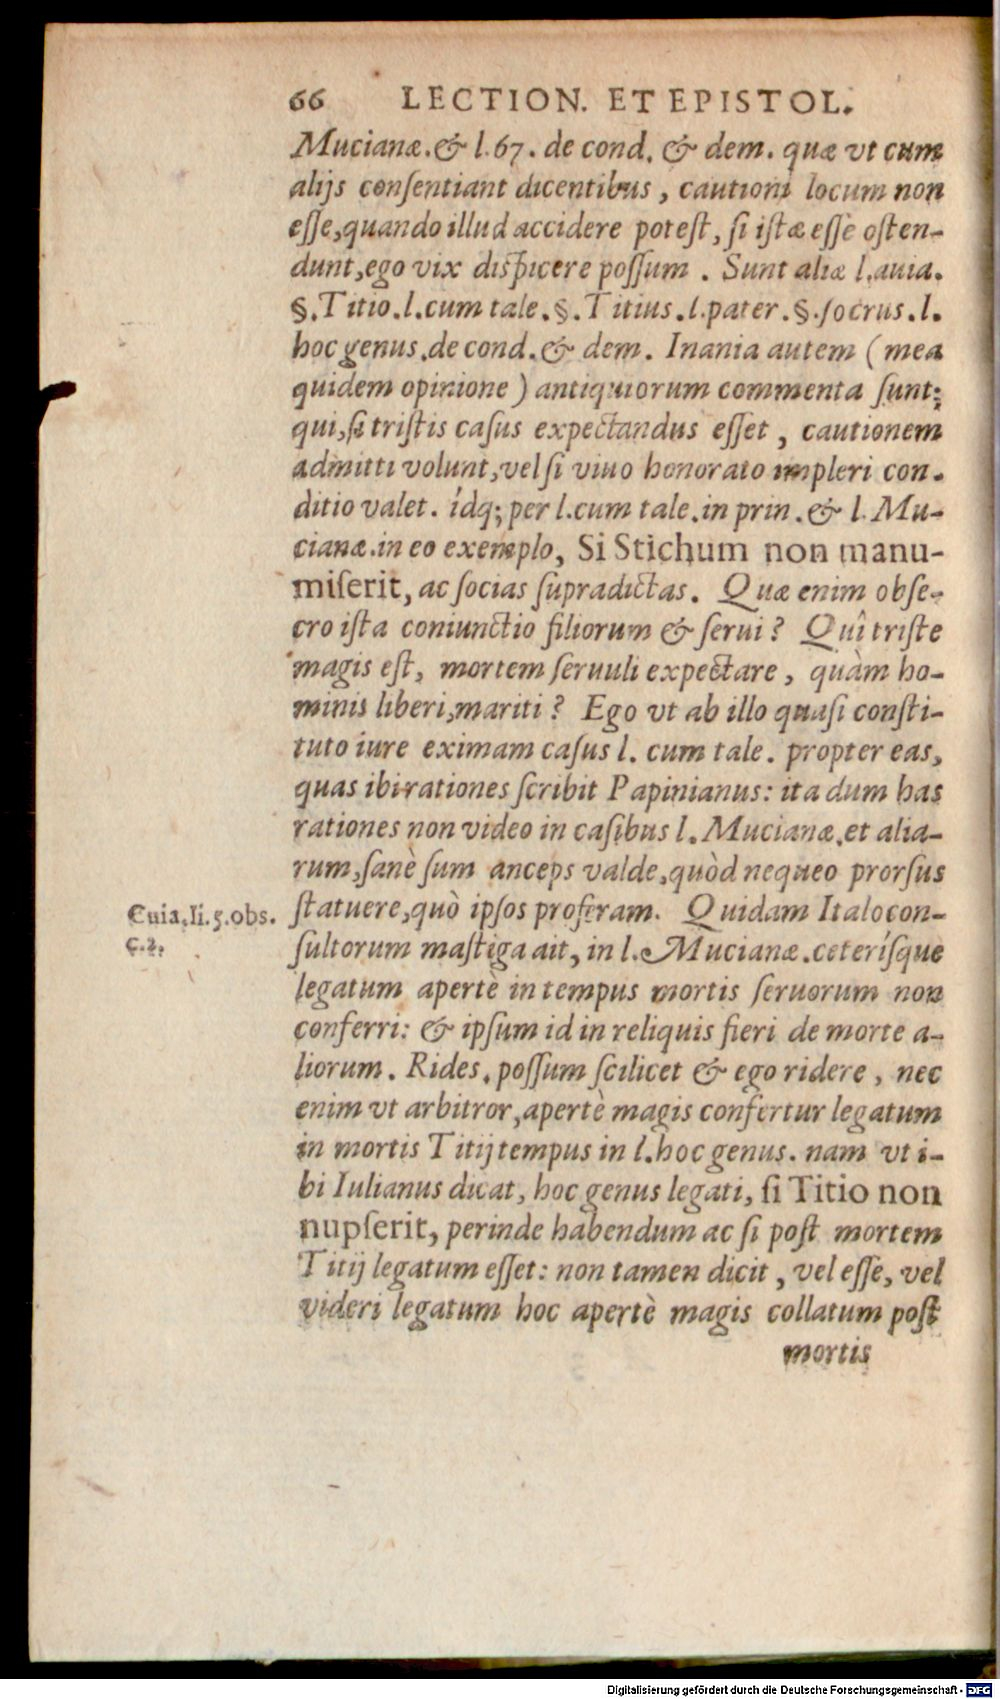 66 LECTION. ET EPISTOL.
Mucianæ.& l.67. de cond. & dem. quæ vt cum
alijs consentiant dicentibus, cautioni locum non
esse,quando illud accidere potest, si istæ essè osten-
dunt,ego vix dispicere possum. Sunt aliæ l.auia.
§.Titio.l.cum tale.§.Titius.l.pater.§.socrus.l.
hoc genus.de cond.& dem. Inania autem (mea
quidem opinione) antiquiorum commenta sunt:
qui,si tristis casus expectandus esset, cautionem
admitti volunt,vel si viuo honorato impleri con-
ditio valet. ídq; per l.cum tale.in prin.& l. Mu-
cianæ.in eo exemplo, Si Stichum non manu-
miserit, ac socias supradictas. Quæ enim obse-
cro ista coniunctio filiorum & serui? Quî triste
magis est, mortem seruuli expectare, quàm ho-
minis liberi,mariti? Ego vt ab illo quasi consti-
tuto iure eximam casus l. cum tale. propter eas,
quas ibi rationes scribit Papinianus: ita dum has
rationes non video in casibus l. Mucianæ.et alia-
rum,sanè sum anceps valde,quòd nequeo prorsus
statuere,quò ipsos proferam. Quidam Italocon-
Cuia.li.5.obs.
c.2.
sultorum mastiga ait, in l. Mucianæ.ceterísque
legatum apertè in tempus mortis seruorum non
conferri: & ipsum id in reliquis fieri de morte a-
liorum. Rides, possum scilicet & ego ridere, nec
enim vt arbitror,apertè magis confertur legatum
in mortis Titij tempus in l.hoc genus. nam vt i-
bi Iulianus dicat, hoc genus legati, si Titio non
nupserit, perinde habendum ac si post mortem
Titij legatum esset: non tamen dicit, vel esse, vel
videri legatum hoc apertè magis collatum post
mortis
Digitalisierung gefördert durch die Deutsche Forschungsgemeinschaft - DFG